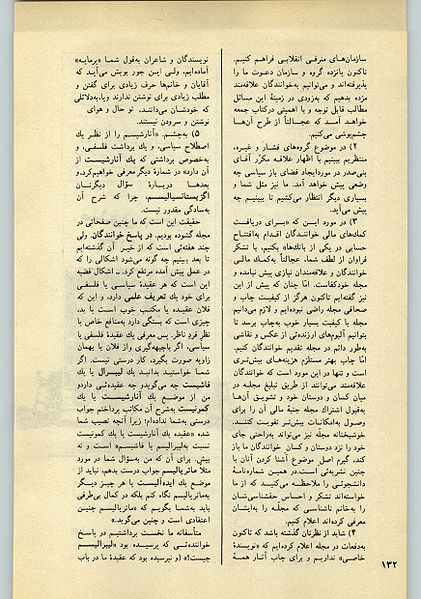 سازمان‌های مترقی انقلابی فراهم کنیم.
تاکنون پانزده گروه و سازمان دعوت ما را
پذیرفته‌اند و می‌توانیم به‌خوانندگان علاقه‌مند
مژده بدهیم که به‌زودی در زمینهٔ این مسائل
مطالب قابل توجه و با اهمیتی در کتاب جمعه
خواهد آمد که عجالتاً از طرح آن‌ها
چشم‌پوشی می‌کنیم.
۲) در موضوع گروه‌های فشار و غیره،
منتظریم ببینیم با اظهار علاقه مکرّر آقای
بنی‌صدر در مورد ایجاد فضای باز سیاسی چه
وضعی پیش خواهد آمد. ما نیز مثل شما و
بسیاری دیگر انتظار می‌کشیم تا ببینیم چه
پیش می‌آید.
۳) در مورد این که «برای دریافت
کمک‌های مالی خوانندگان اقدام به‌افتتاح
حسابی در یکی از بانک‌ها بکنیم، با تشکر
فراوان از لطف شما، عجالتاً به‌کمک مالی
خوانندگان و علاقه‌مندان نیازی پیش نیامده و
مجله خودکفاست. امّا چنان که پیش از این
نیز گفته‌ایم تاکنون هرگز از کیفیت چاپ و
صحافی مجله راضی نبوده‌ایم و لازم می‌دانیم
مجله با کیفیت بسیار خوب به‌چاپ برسد تا
بتوانیم آلبوم‌های ارزنده‌ئی از عکس و نقاشی
به‌طور دائم در مجله تقدیم خوانندگان کنیم.
امّا چاپ بهتر مستلزم هزینه‌های بیش‌تری
است و تنها در این مورد است که خوانندگان
علاقه‌مند می‌توانند از طریق تبلیغ مجله در
میان کسان و دوستان خود و تشویق آن‌ها
به‌قبول اشتراک مجله جنبهٔ مالی آن را برای
وصول به‌امکانات بیش‌تر تقویت کنند.
خوشبختانه مجلّه نیز می‌تواند به‌راحتی جای
خود را نزد دوستان و کسان خوانندگان ما باز
کند، گیرم اصل موضوع آشنا کردن آنان با
چنین نشریه‌ئی است. در همین شماره نامهٔ
دانشجوئی را ملاحظه می‌کنید که از ما
خواسته‌اند تشکر و احساس حقشناسی‌شان
را به‌خانم ناشناسی که مجله را به‌ایشان
معرفی کرده‌اند اعلام کنیم.
۴) شاید از نظرتان گذشته باشد که تاکنون
به‌دفعات در مجله اعلام کرده‌ایم که «نویسندهٔ
خاصی» نداریم و برای چاپ آثار همهٔ
نویسندگان و شاعران به‌قول شما «برمایه»
آماده‌ایم، ولی این جور پویش می‌آید که
آقایان و خانم‌ها حرف زیادی برای گفتن و
مطلب زیادی برای نوشتن ندارند و یا، به‌دلائلی
که خودشان می‌دانند، تو حال و هوای
نوشتن و سرودن نیستند.
۵) به‌چشم. «آنارشیسم را از نظر یك
اصطلاح سیاسی، و یك برداشت فلسفی، و
به‌خصوص برداشتی که یك آنارشیست از
آن دارد» در شمارهٔ دیگر معرفی خواهیم‌کرد، و
بعدها دربارهٔ سؤال دیگرتان
اگزیستانسیالیسم، چرا که شرح آن
به‌سادگی مقدور نیست.
حقیقت این است که ما چنین صفحاتی در
مجله گشوده بودیم. در پاسخ خوانندگان. ولی
چند هفته‌ئی است که از خیر آن گذشته‌ایم
تا بعد ببینیم چه گونه می‌شود اشکالی را که
در عمل پیش آمده مرتفع کرد. ــ اشکال قضیه
این است که هر عقیدهٔ سیاسی یا فلسفی
برای خود یك تعریف علمی دارد، و این که
فلان عقیده یا مکتب خوب است یا بد،
چیزی است که بستگی دارد به‌منافع خاص یا
نظر فرد ناظر. پس معرفی یك عقیدهٔ فلسفی یا
سیاسی، اگر با جبهه‌گیری و از فلان یا بهمان
زاویه صورت بگیرد، کار درستی نیست. اگر
شما خواستید بدانید یك لیبرال یا یك
فاشیست چه می‌گوید و چه عقیده‌ئی دارد و
من از موضع یك آنارشیست یا یك
کمونیست به‌شرح آن مکاتب پرداختم جواب
درستی به‌شما نداده‌ام؛ زیرا آنچه نصیب شما
شده «عقیده یك آنارشیست یا یك کمونیست
نسبت به‌لیبرالیسم یا فاشیسم» است و نه
بیش. برای آن که من به‌سؤال شما در مورد
مثلا ماتریالیسم جواب درست بدهم، نباید از
موضع یك ایده‌آلیست یا هر چیز دیگر
به‌ماتریالیسم نگاه کنم بلکه در کمال بی‌طرفی
باید به‌شما بگویم که «ماتریالیسم چنین
اعتقادی است و چنین می‌گوید.»
متأسفانه ما نخست برداشتیم در پاسخ
خواننده‌ئی که پرسیده بود «لیبرالیسم
چیست؟» (و نپرسیده بود که عقیدهٔ ما در باب
۱۳۲